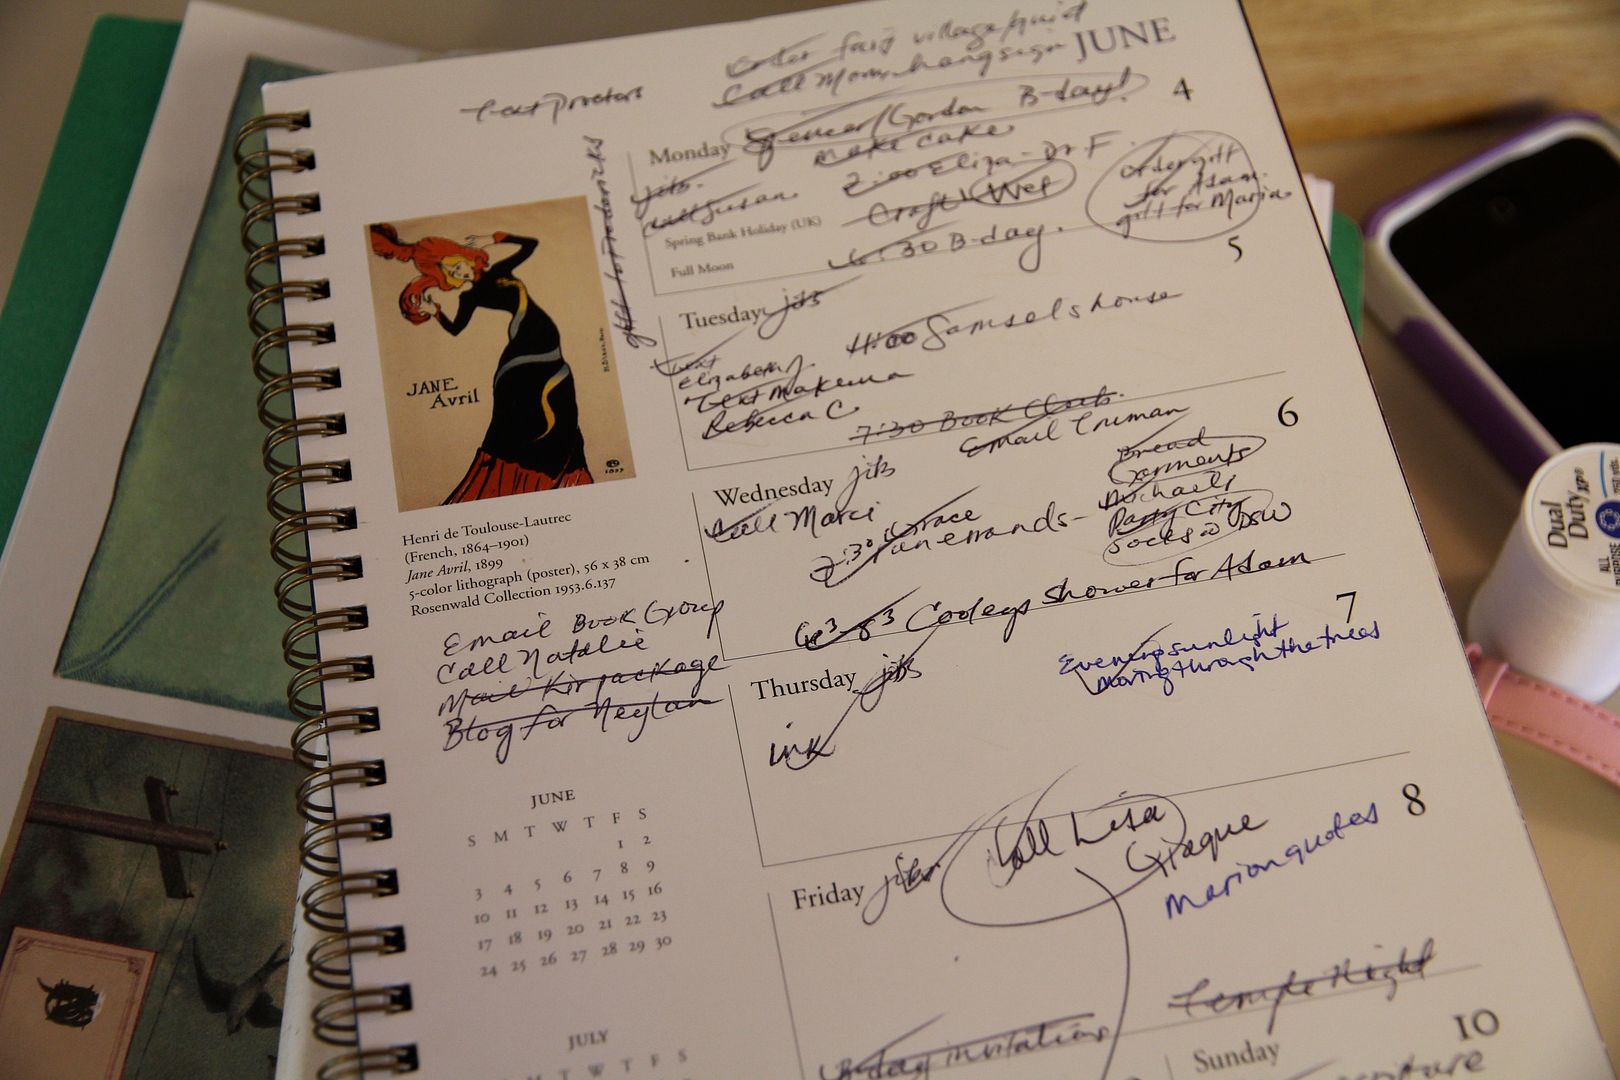 Text Proctors
village/quiet
Call Mom hang sign
JUNE
4
Monday
Spencer/Gordon B-day!
make cake
jits
Call Susan
2:00 Eliza - Dr F.
Craft Wet
Spring Bank Holiday (UK)
Full Moon
6:30 B-day.
order gift
for Adam
gift for Maria
5
Tuesday jits
Text
Elizabeth J.
Text Makenna
Rebecca C
11:00 Samsels house
7:30 Book Club.
Email Truman
6
Wednesday jits
Call Marci
2:30 Grace
run errands -
Bread
Garments
Michaels
Party City
Socks @ DSW
Cooleys shower for Adam
7
Thursday jits
ink
Evening sunlight
moving through the trees
8
Friday jits
Call Lisa
Haque
Marion quotes
Temple Night
B-day invitations
10
Sunday
JANE
Avril
1899
Henri de Toulouse-Lautrec
(French, 1864–1901)
Jane Avril, 1899
5-color lithograph (poster), 56 x 38 cm
Rosenwald Collection 1953.6.137
Email Book Group
Call Natalie
Mail Kir package
Blog for Neylan
JUNE
S M T W T F S
1 2
3 4 5 6 7 8 9
10 11 12 13 14 15 16
17 18 19 20 21 22 23
24 25 26 27 28 29 30
JULY
M T W T F S
Dual
Duty XP
ALL